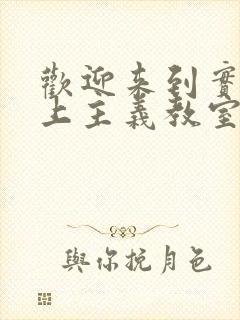 歡迎來到實
上主義教室
與你挽月色